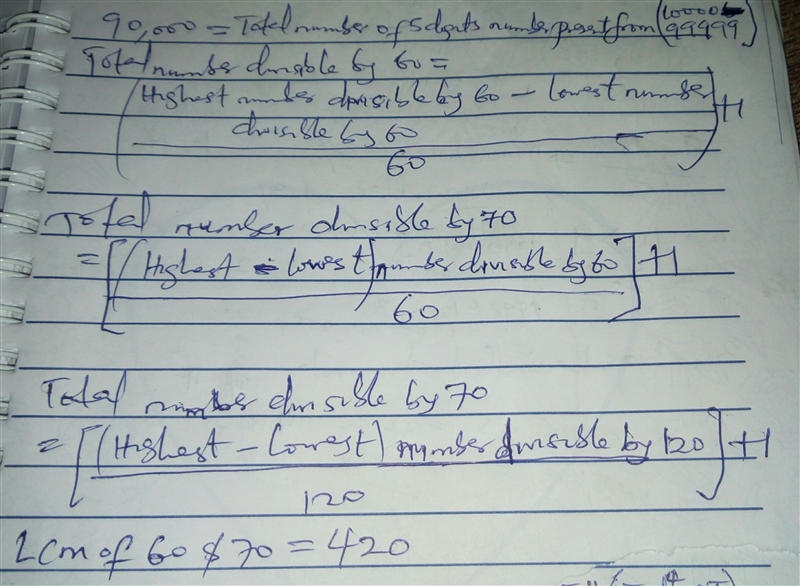 90,000 = Total number of 5 digits number present from (10000 to
99999)
Total number divisible by 60 =
(Highest number divisible by 60 - lowest number
divisible by 60
60
) + 1
Total number divisible by 70
= [(Highest - lowest) number divisible by 60] + 1
60
Total number divisible by 70
= [(Highest - lowest) number divisible by 120] + 1
120
LCM of 60 & 70 = 420